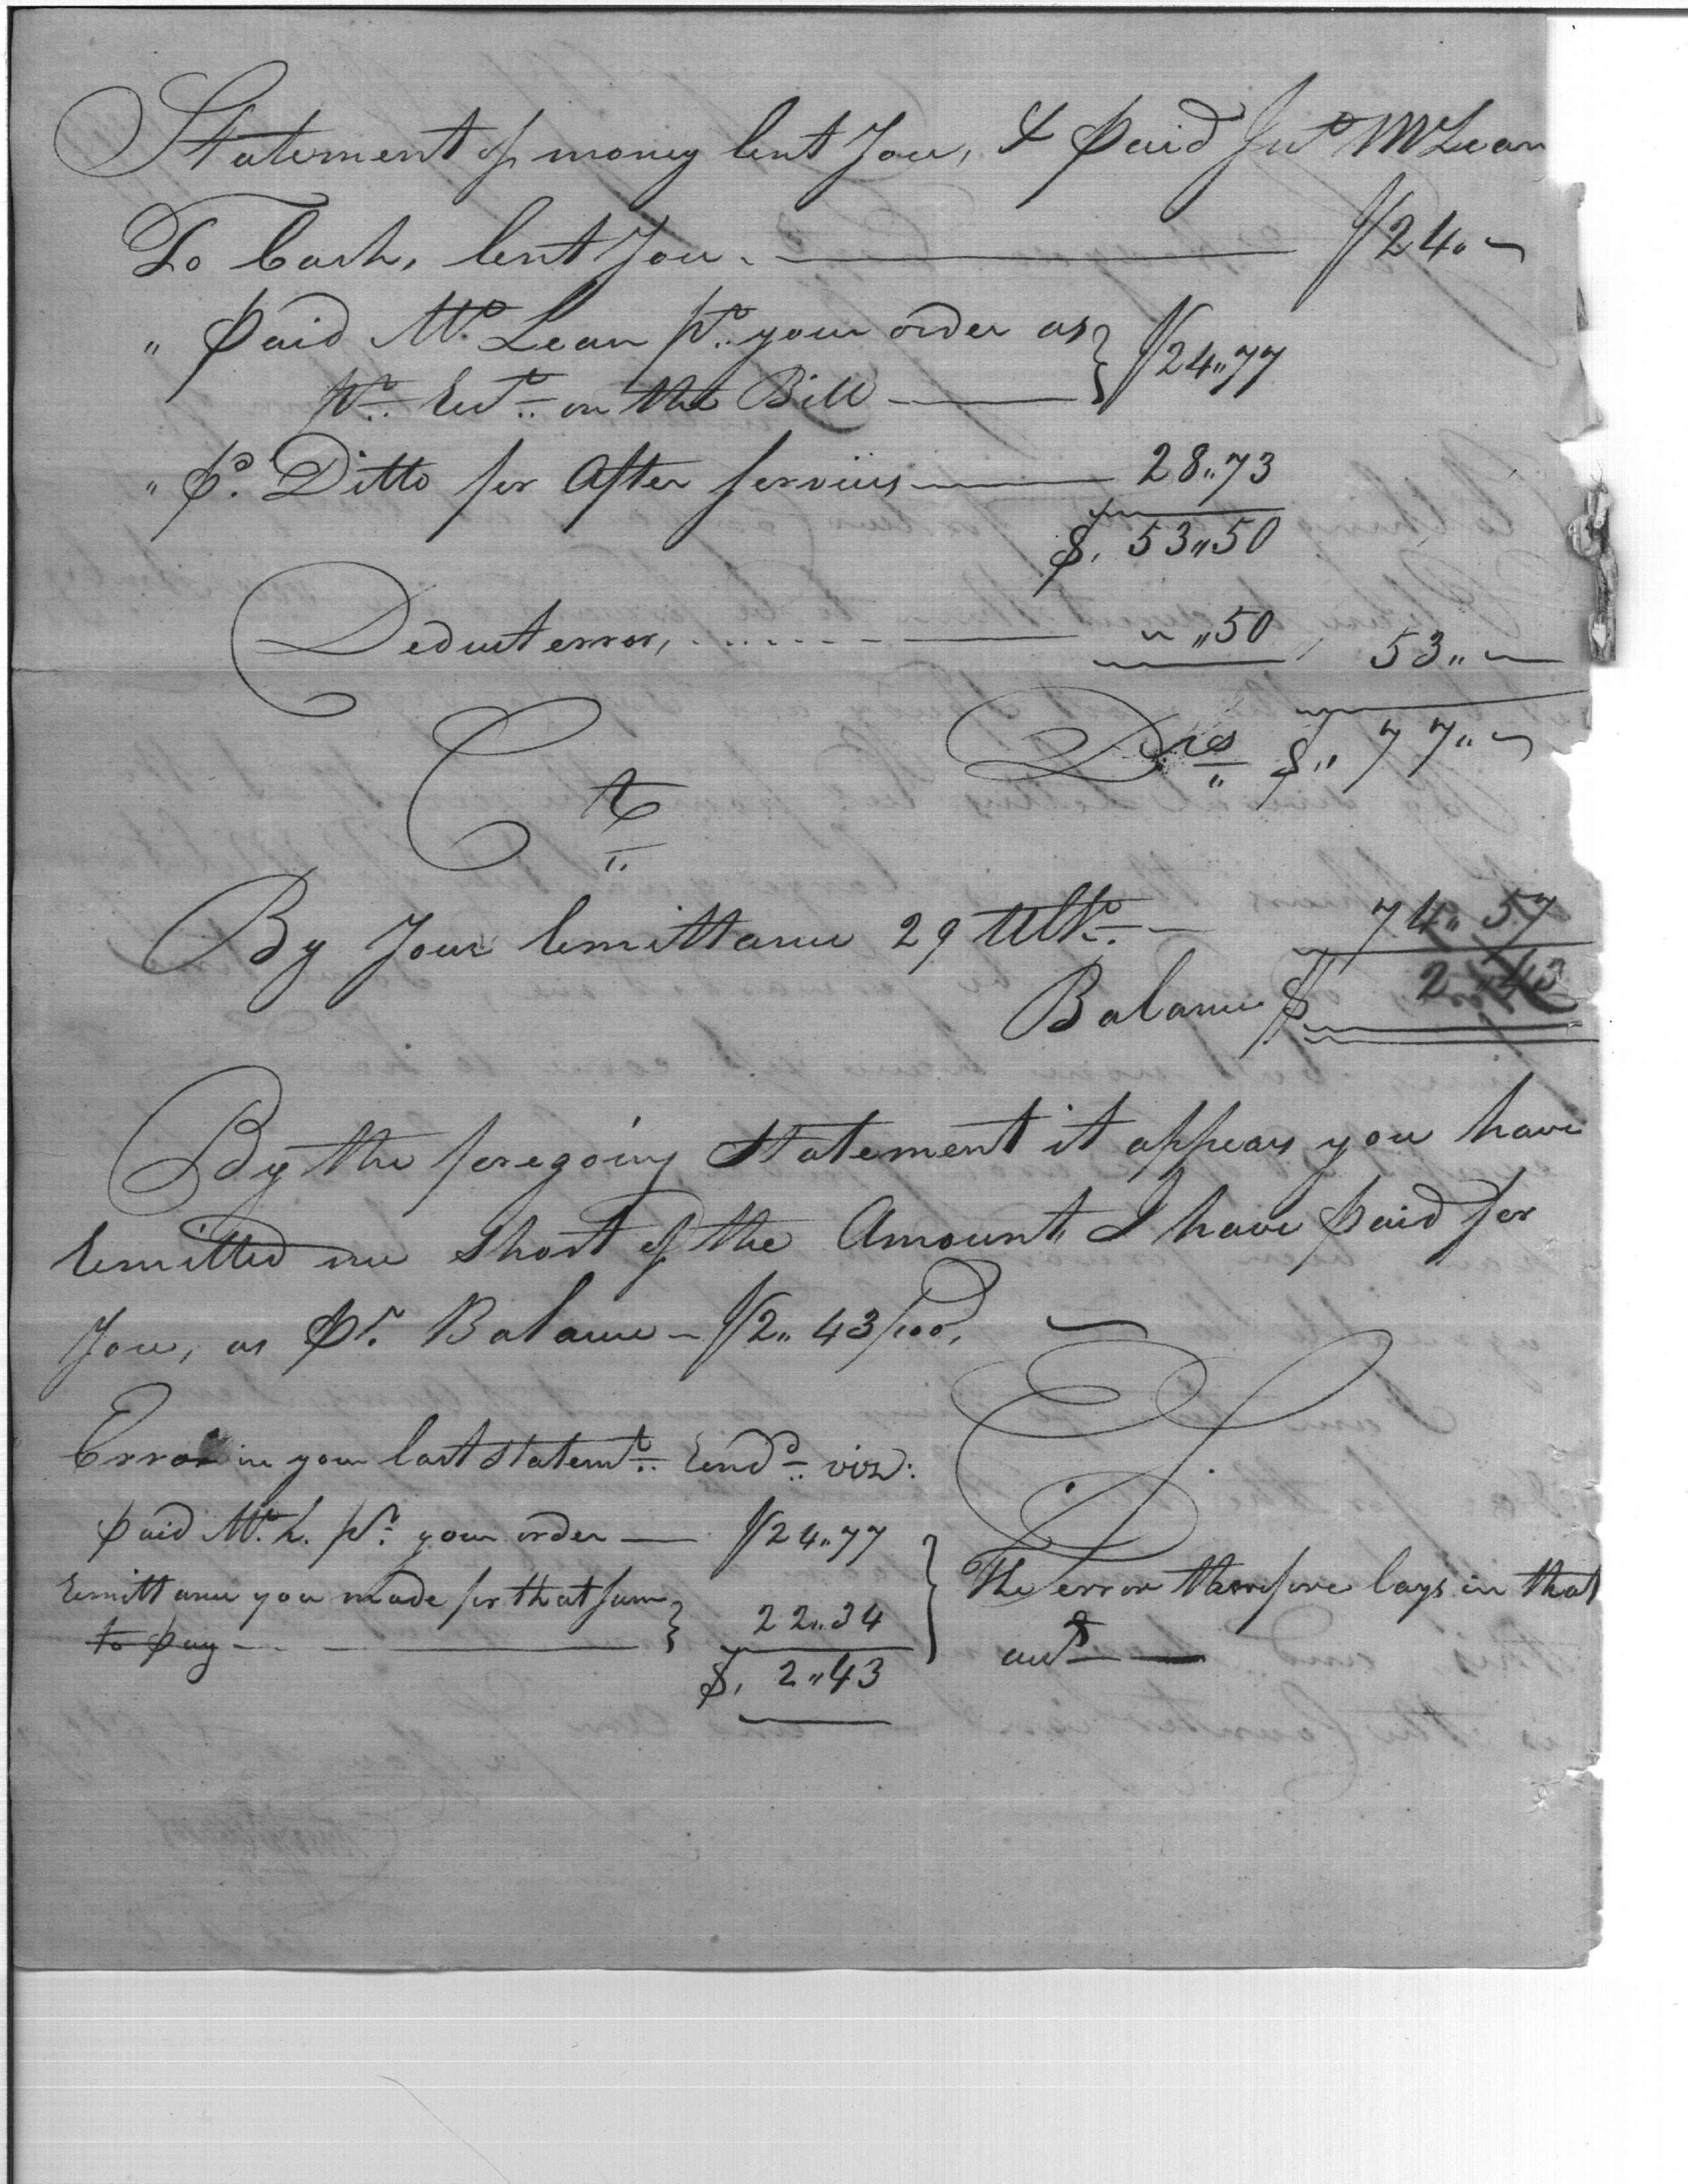 Statement of money lent You, & paid Jno McLean
To Cash, lent You. $24"~
" paid Mr. Lean pr. your order as } $24"77
pr. Rect. on the Bill
" pd. Ditto for After services 28"73
$. 53"50
Deduct error, ~ "50 53"~
Drs $" 77"~
Ct
By Your remittance 29 Ulto. 74"57
Balance $ 2"43
By the foregoing statement it appears you have
remitted me short of the Amount, I have paid for
You, as pr. Balance ~ $2"43/100.
Error in your last statemt. rend. viz:
paid Mr. L. pr. your order — $24"77
remittance you made for that sum } 22"34
to pay
$, 2"43
The error therefore lays in that
act.